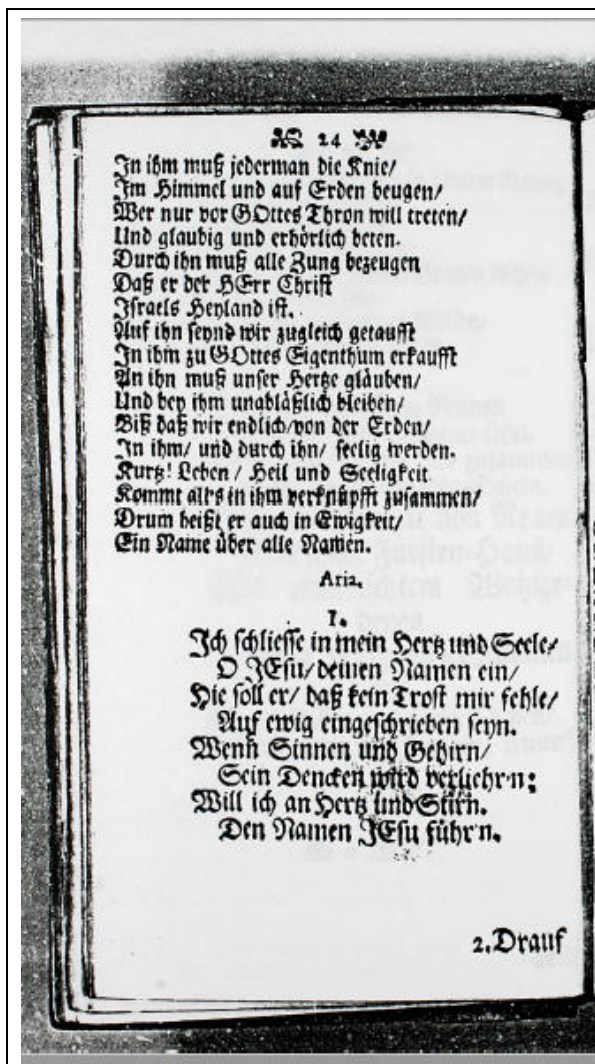 24
In ihm muß jederman die Knie/
Im Himmel und auf Erden beugen/
Wer nur vor GOttes Thron will treten/
Und glaubig und erhörlich beten.
Durch ihn muß alle Zung bezeugen
Daß er der HErr Christ
Israels Heyland ist.
Auf ihn seynd wir zugleich getaufft
In ihm zu GOttes Eigenthum erkaufft
An ihn muß unser Hertze gläuben/
Und bey ihm unabläßlich bleiben/
Biß daß wir endlich/von der Erden/
In ihm/ und durch ihn/ seelig werden.
Kurtz! Leben/ Heil und Seeligkeit
Kommt alls in ihm verknüpfft zusammen/
Drum heißt er auch in Ewigkeit/
Ein Name über alle Namen.
Aria.
1.
Ich schliesse in mein Hertz und Seele/
O JEsu/ deinen Namen ein/
Hie soll er/ daß kein Trost mir fehle/
Auf ewig eingeschrieben seyn.
Wenn Sinnen und Gehirn/
Sein Dencken wird verliehr'n:
Will ich an Hertz und Stirn.
Den Namen JEsu führ'n.
2. Drauf